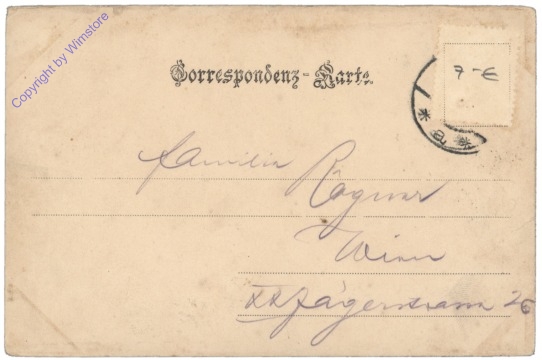 Copyright by Wimstore
Correspondenz-Karte.
7-€
Familie
Wien
XX Jägerstrasse 26